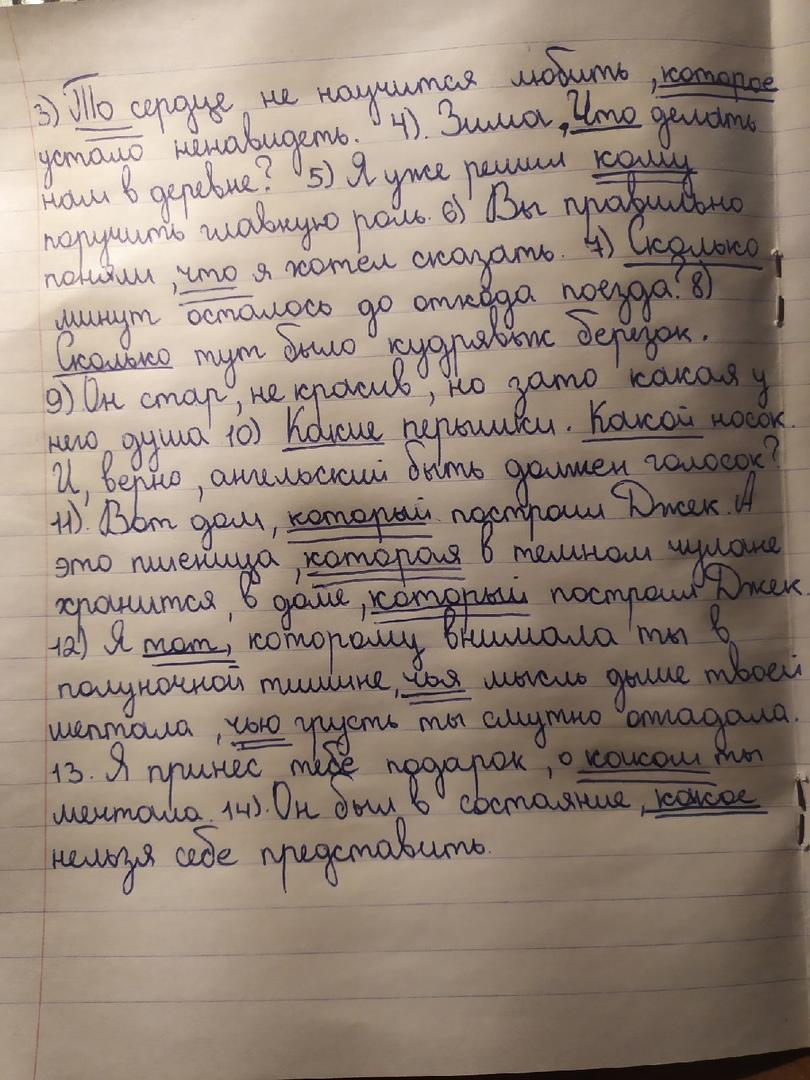 3) То сердце не научится любить, которое
устало ненавидеть. 4). Зима, Что делать
нам в деревне? 5) Я уже решил кому
поручить главную роль. 6) Вы правильно
поняли, что я хотел сказать. 7) Сколько
минут осталось до отхода поезда? 8)
Сколько тут было кудрявых березок.
9) Он стар, не красив, но зато какая у
него душа 10) Какие перышки. Какой носок.
И, верно, ангельский быть должен голосок?
11). Вот дом, который построил Джек. А
это пшеница, которая в темном чулане
хранится, в доме, который построил Джек.
12) Я тот, которому внимала ты в
полуночной тишине, чья мысль дыше твоей
шептала, чью грусть ты смутно отгадала.
13. Я принес тебе подарок, о каком ты
мечтала. 14). Он был в состояние, какое
нельзя себе представить.